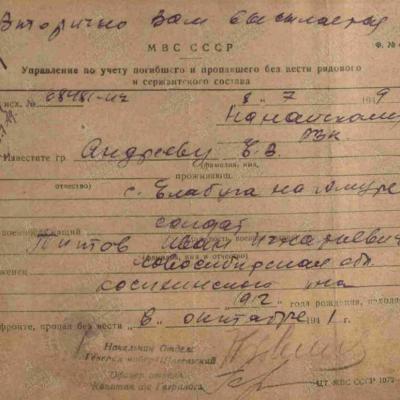 Вторично Вам высылается
МВС СССР
Ф. №
Управление по учету погибшего и пропавшего без вести рядового
и сержантского состава
исх. № 68481-ич 8 " 7 1949
Нанайскому
РВК
Известите гр. Андрееву Е.В.
(фамилия, имя,
отчество) проживающ.
с. Елабуга на Амуре
военнослужащий солдат
Иван Игнатьевич
(фамилия, имя и отчество)
Новосибирская обл.
на
1912 года рождения, находясь
фронте, пропал без вести в октябре 1941 г.
Начальник Отдела
Генерал майор
Офицер отдела
Капитан а/с Гаврилова
ЦТ МВС СССР 1072